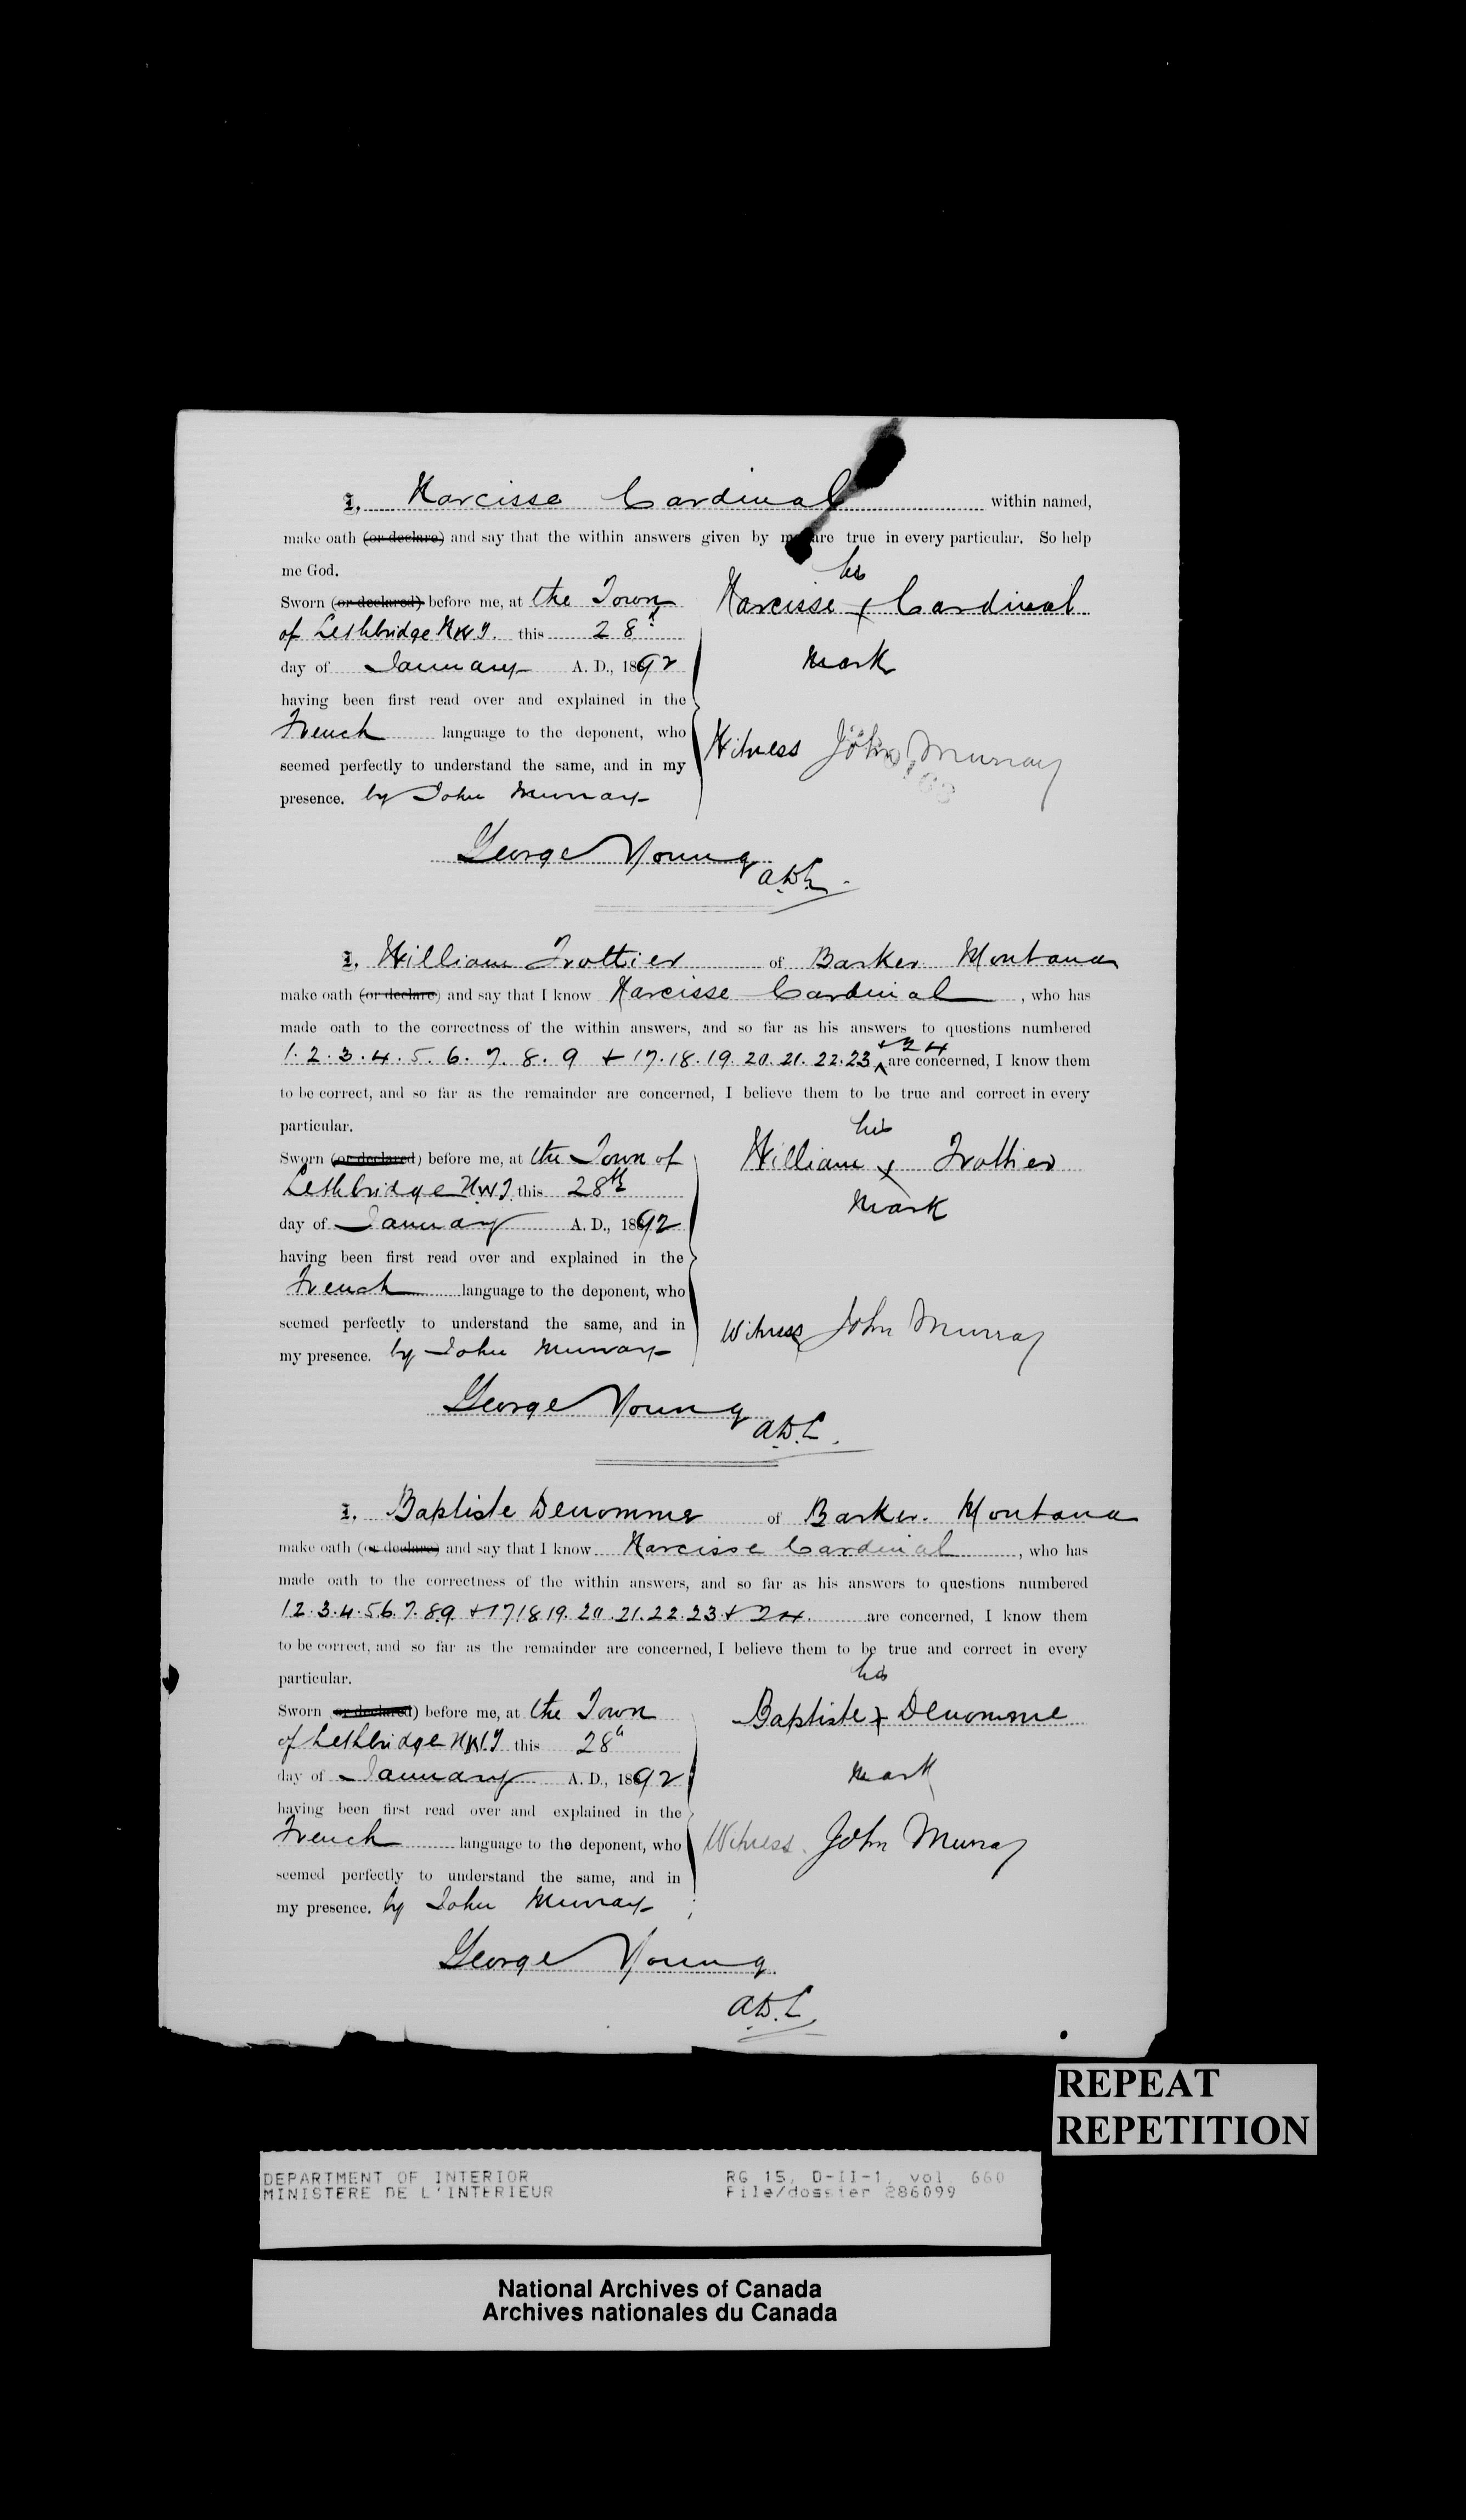 I, Narcisse Cardinal within named,
make oath (or declare) and say that the within answers given by me are true in every particular. So help
me God.
his
Sworn (or declared) before me, at the Town Narcisse x Cardinal
of Lethbridge N.W.T. this 28th
day of January A. D., 1892 mark
having been first read over and explained in the
French language to the deponent, who
Witness John Murray
seemed perfectly to understand the same, and in my
presence. by John Murray
George Young
A.D.L.
I, William Trottier of Barker Montana
make oath (or declare) and say that I know Narcisse Cardinal, who has
made oath to the correctness of the within answers, and so far as his answers to questions numbered
+ 24
1. 2. 3. 4. 5. 6. 7. 8. 9 + 17. 18. 19. 20. 21. 22. 23 ^ are concerned, I know them
to be correct, and so far as the remainder are concerned, I believe them to be true and correct in every
particular.
his
Sworn (or declared) before me, at the Town of William x Trottier
Lethbridge N.W.T. this 28th
mark
day of January A. D., 1892
having been first read over and explained in the
French language to the deponent, who
seemed perfectly to understand the same, and in Witness John Murray
my presence. by John Murray
George Young
A.D.L.
I, Baptiste Denomme of Barker. Montana
make oath (or declare) and say that I know Narcisse Cardinal, who has
made oath to the correctness of the within answers, and so far as his answers to questions numbered
1 2. 3. 4. 5 6. 7. 8 9. + 17 18 19. 20. 21. 22. 23 + 24. are concerned, I know them
to be correct, and so far as the remainder are concerned, I believe them to be true and correct in every
particular.
his
Sworn (or declared) before me, at the Town Baptiste x Denomme
of Lethbridge N.W.T this 28th
day of January A. D., 1892 mark
having been first read over and explained in the
French language to the deponent, who Witness. John Murray
seemed perfectly to understand the same, and in
my presence. by John Murray
George Young
A.D.L.
REPEAT
REPETITION
DEPARTMENT OF INTERIOR RG 15, D-II-1, vol. 660
MINISTERE DE L'INTERIEUR File/dossier 286099
National Archives of Canada
Archives nationales du Canada